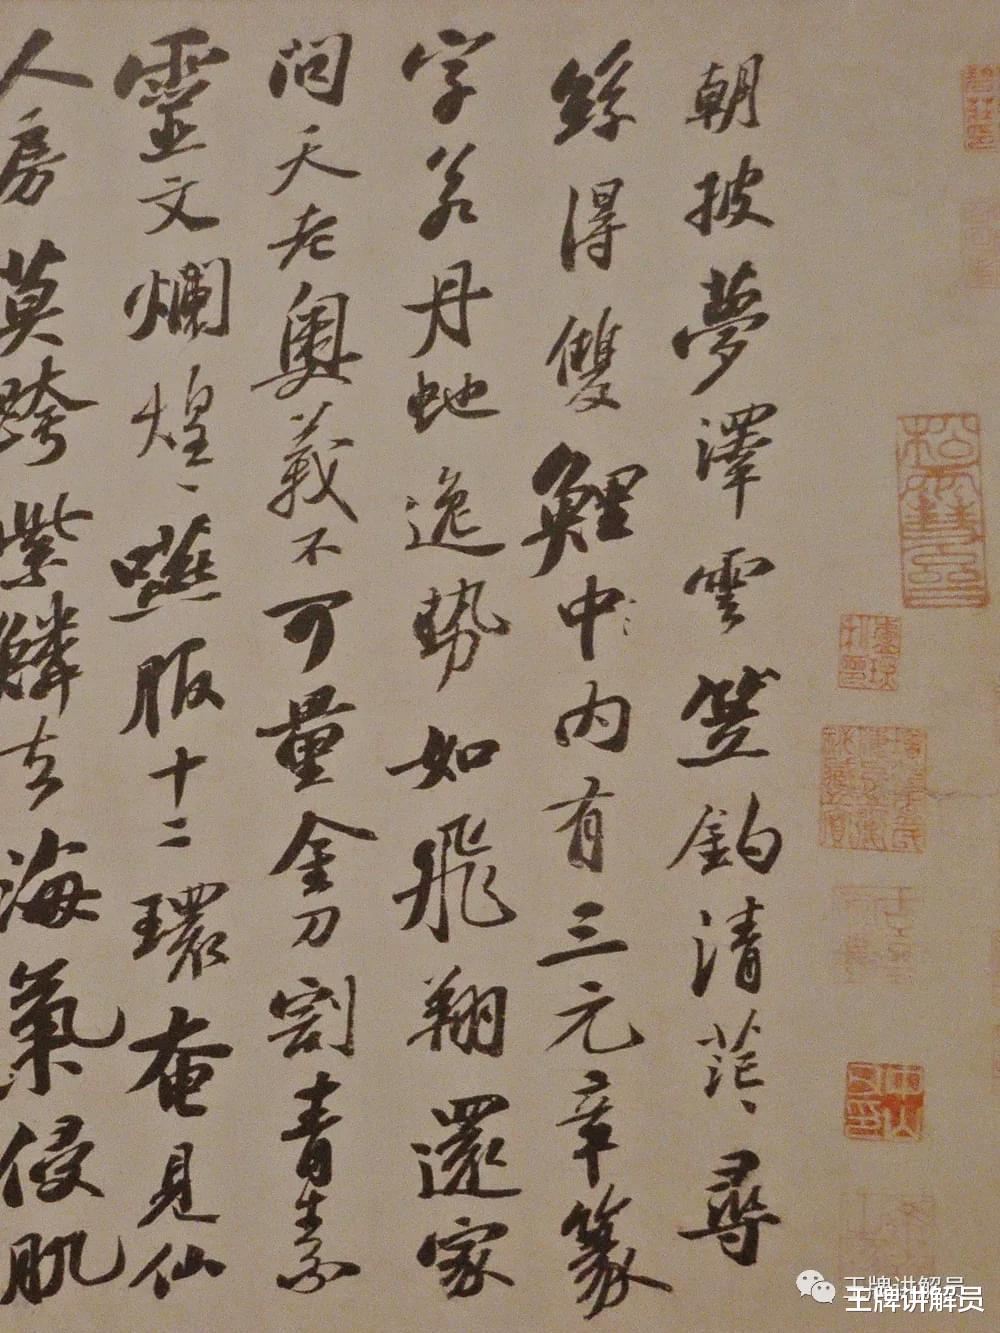 朝披夢澤雲笠釣清茫〻尋
絲得雙鯉中內有三元章篆
字若丹虵逸勢如飛翔還家
問天老奧義不可量金刀割青素
靈文爛煌〻嚥服十二環奄見仙
人房莫跨紫鱗去海氣侵肌
王牌讲解员
王牌讲解员